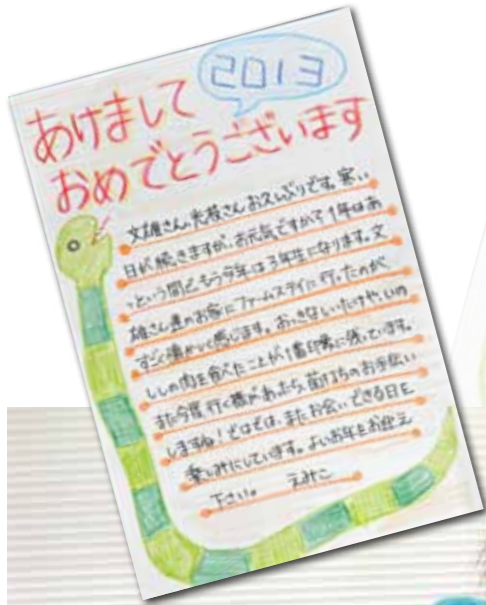 2013
あけまして
おめでとうございます
文雄さん、光枝さんお久しぶりです。寒い
日が続きますが、お元気ですか？1年はあ
っという間でもう今年は3年生になります。文
雄さん達のお家にファームステイに行ったのが
すごく懐かしく感じます。おっきなしいたけや、いの
ししの肉を食べたことが1番印象に残っています。
また今度行く機があったら、苗打ちのお手伝い
しますね！ではでは、またお会いできる日を
楽しみにしています。よいお年をお迎え
下さい。 えみこ